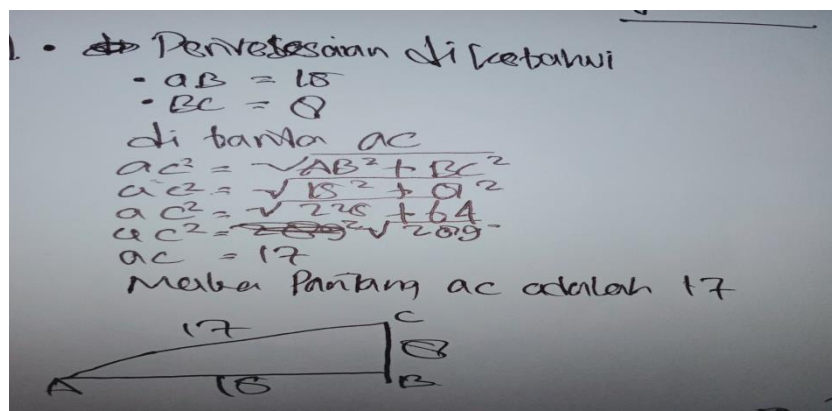 1. • Penyelesaian diketahui
• aB = 15
• BC = 8
di tanya ac
ac² = √AB² + BC²
ac² = √15² + 8²
ac² = √225 + 64
ac² = √289
ac = 17
Maka Panjang ac adalah 17
17
C
8
A
15
B